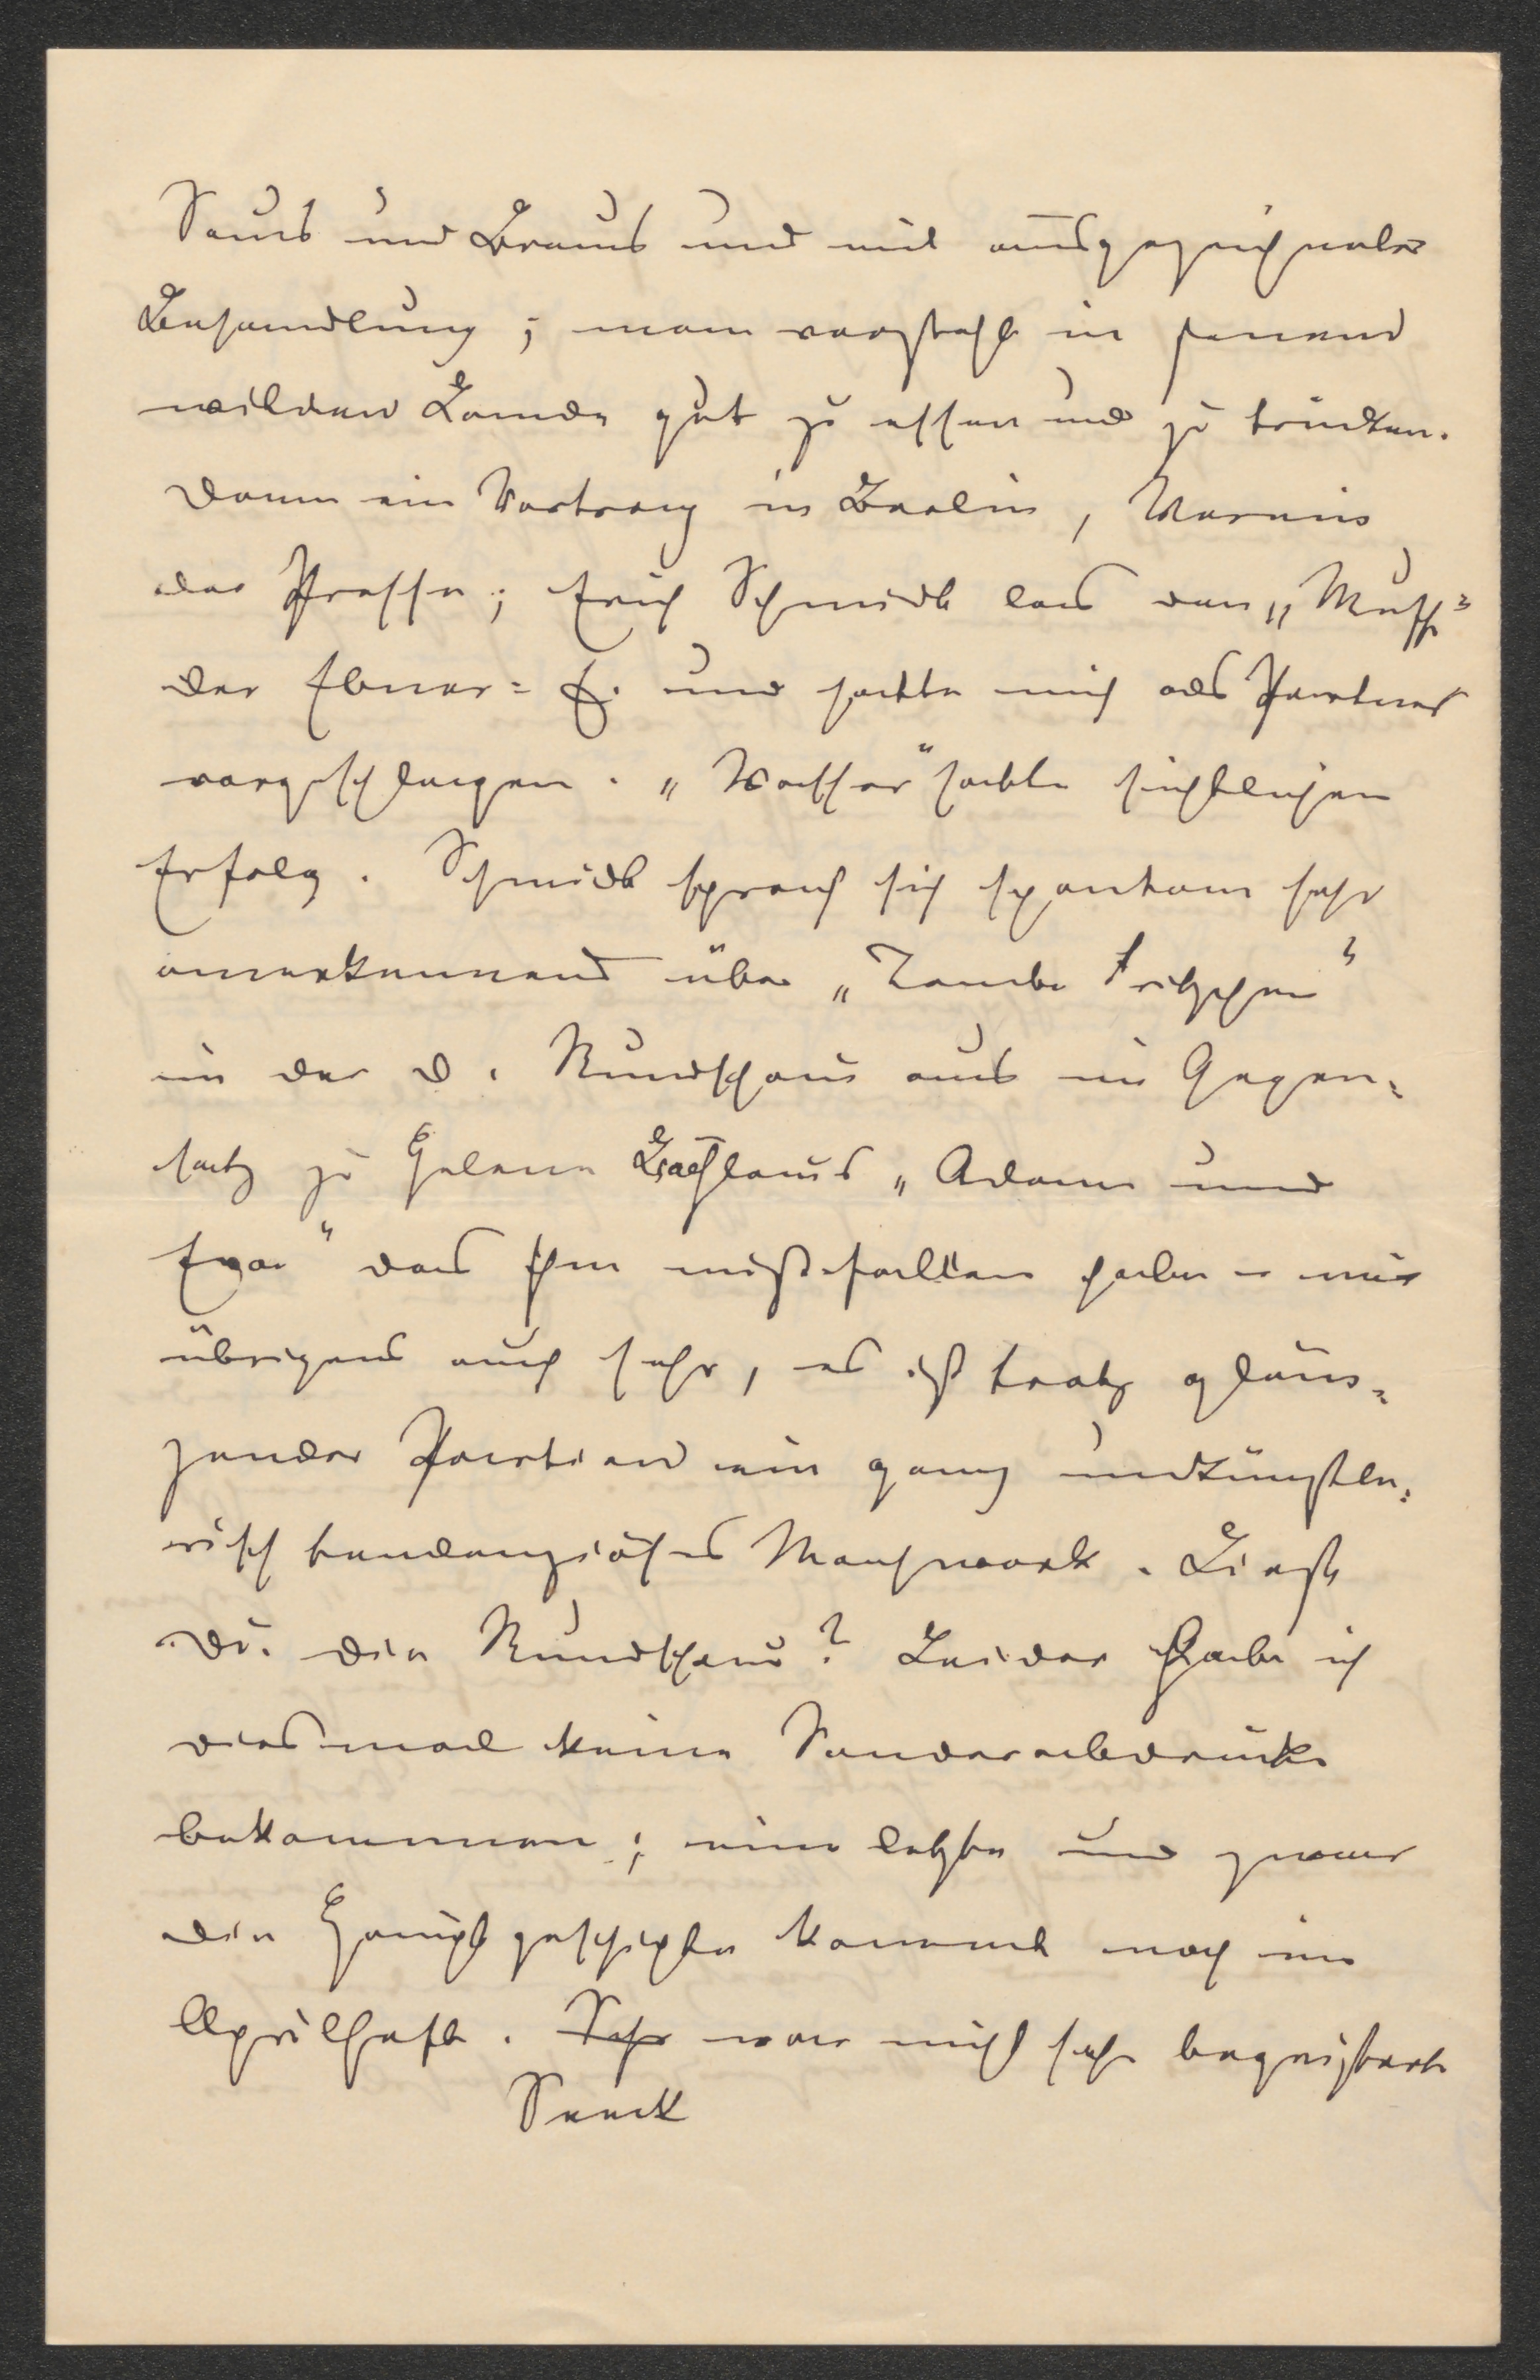 Saus und Braus und mit ausgezeichneter
Behandlung; man versteht in jenem
wilden Lande gut zu essen und zu trinken.
Dann ein Vortrag in Berlin, Verein
der Presse; Erich Schmidt las den „Muff“
der Ebner=E. und hatte mich als Partner
vorgeschlagen. „Wasser“ hatte sichtlichen
Erfolg. Schmidt sprach sich spontan sehr
anerkennend über „Tante Fritzchen“
in der D. Rundschau aus im Gegen=
satz zu Helene Böhlaus „Adam und
Eva“ das ihm mißfallen habe – mir
übrigens auch sehr, es ist trotz glän=
zender Partien ein ganz unkünstle=
risch tendenziöses Machwerk. Liest
Du die Rundschau? Leider habe ich
diesmal keine Sonderabdrücke
bekommen; eine letzte und zwar
die Hauptgeschichte kommt noch im
Aprilheft. Sehr war nicht sehr begeistert